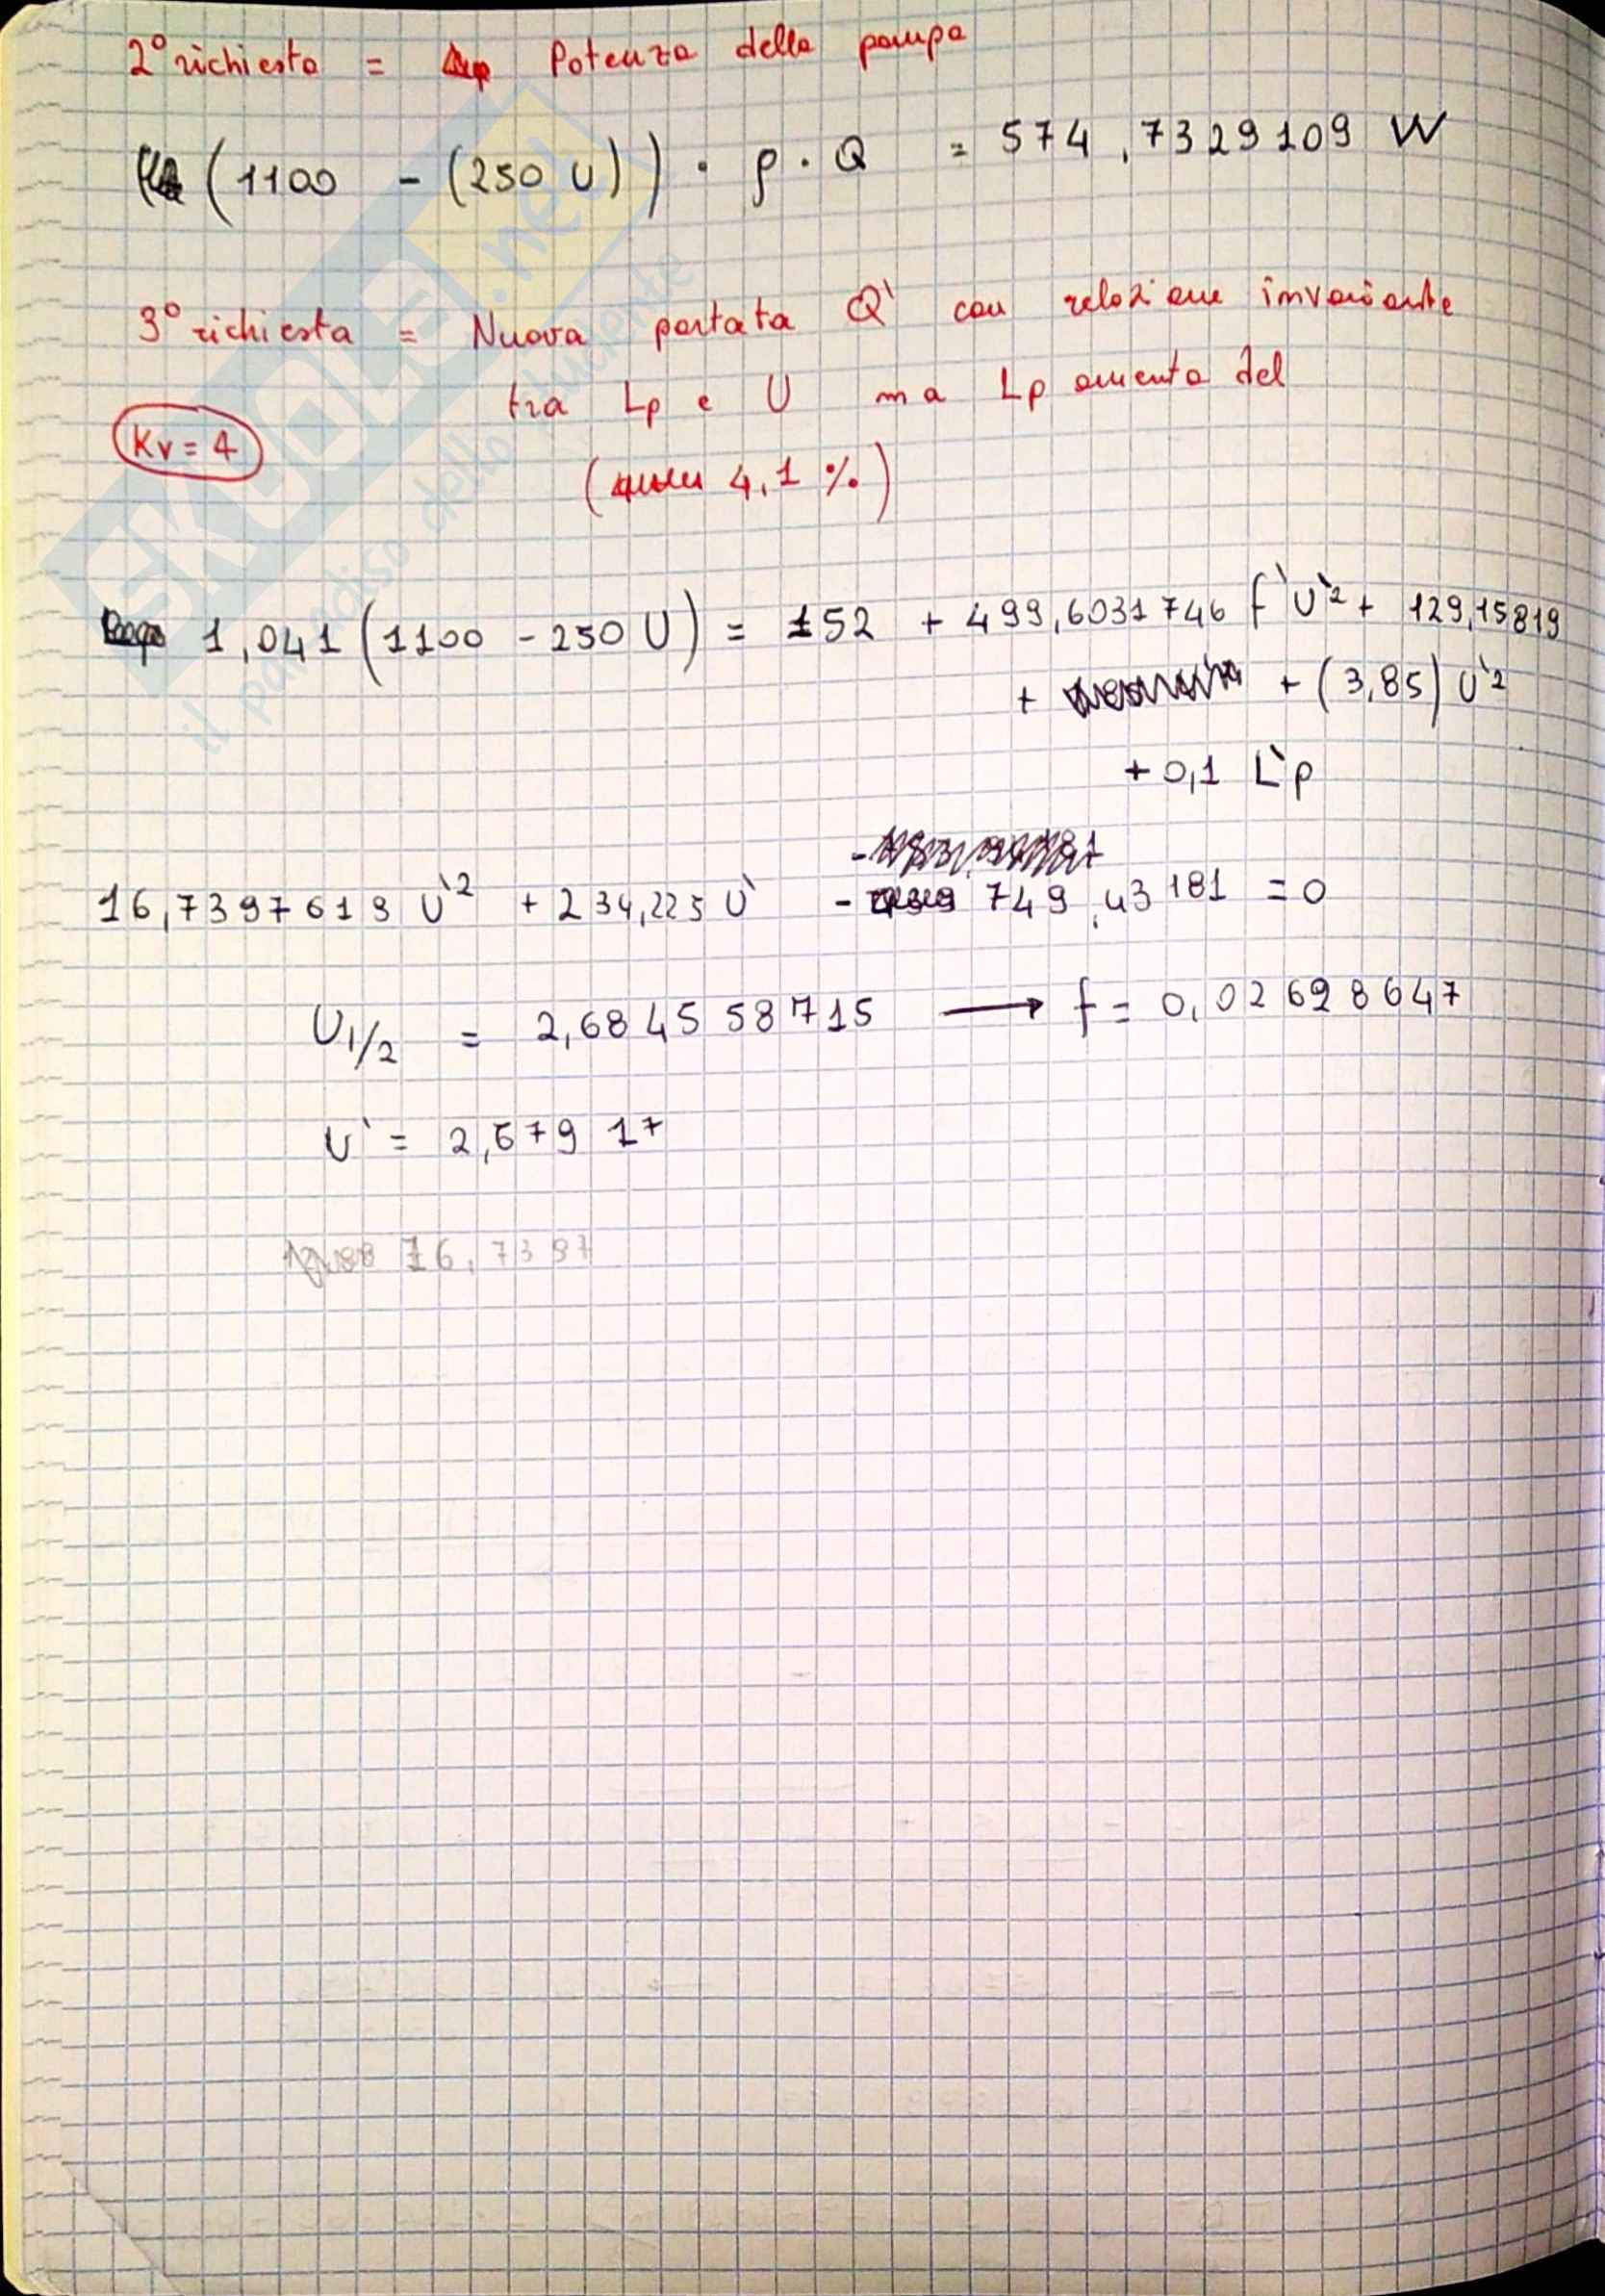 2° richiesta = Potenza della pompa
(1100 - (250 U)) · ρ · Q = 574,7329109 W
3° richiesta = Nuova portata Q' con relazione invariante
tra Lp e U ma Lp aumenta del
Kv = 4
( 4,1 %)
1,041 (1100 - 250 U) = 152 + 499,6031746 f' U'² + 129,15819
+ + (3,85) U'²
+ 0,1 L'p
16,7397619 U'² + 234,225 U' - 749,43181 = 0
U1/2 = 2,6845558715 → f = 0,02698647
U' = 2,67917
16,7397
SKUOLA.net
il paradiso dello studente